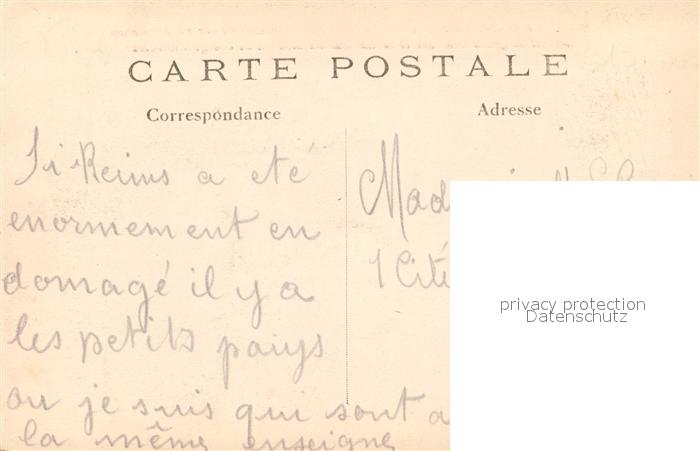 CARTE POSTALE
Correspondance
Adresse
Si Reims a eté
enormement en
domagé il y a
les petits pays
ou je suis qui sont a
la même enseigne
Mad
1 Cité
privacy protection
Datenschutz